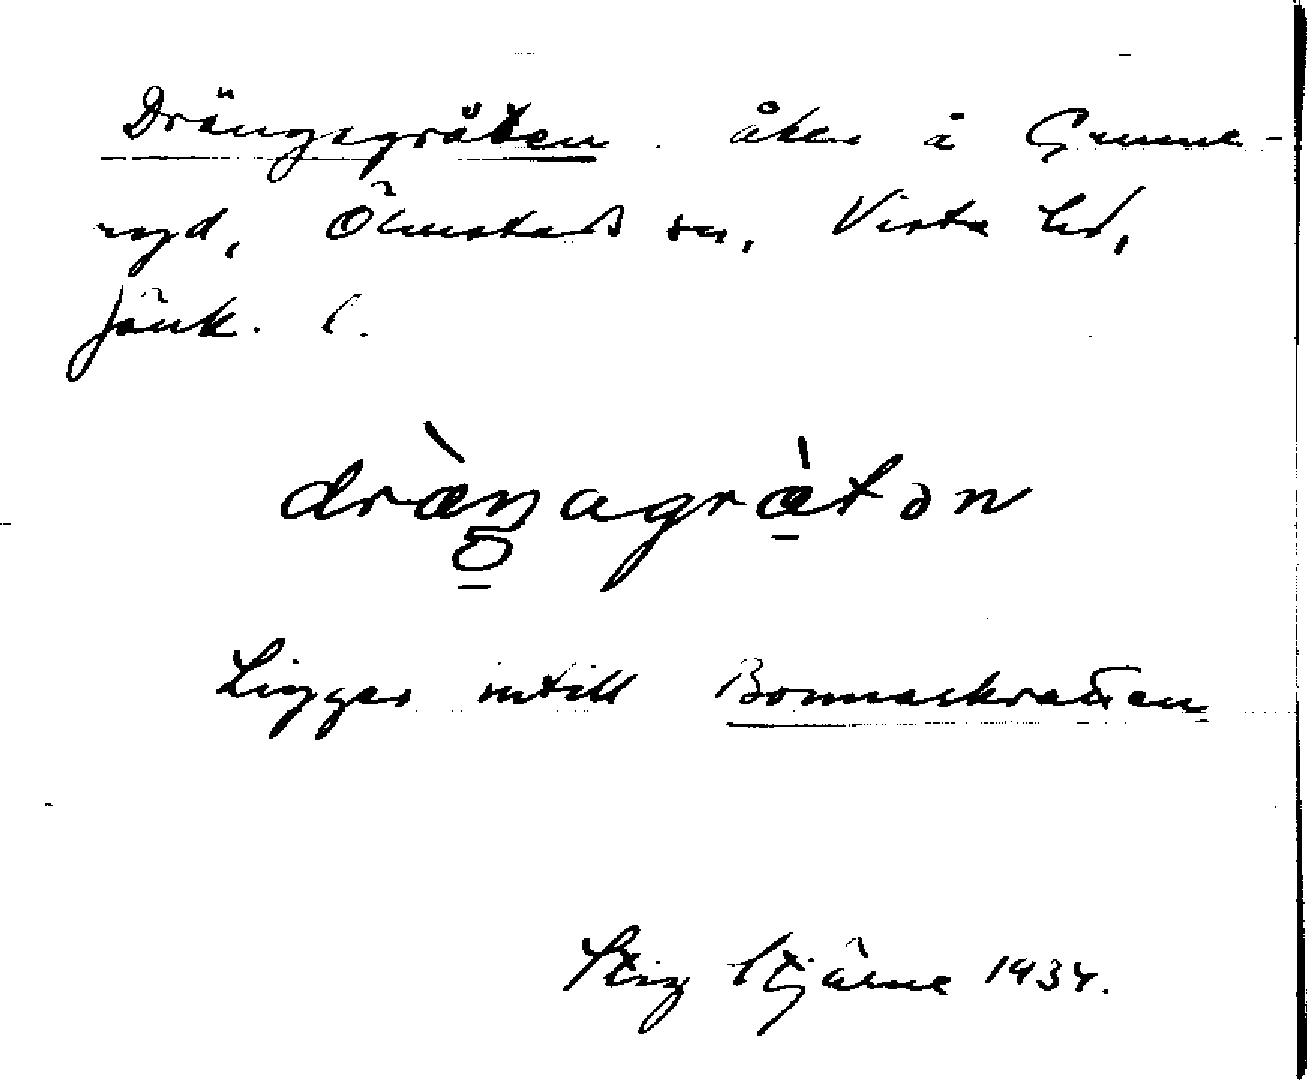 Drängagråten. åker å Grunne-
ryd, Ölmstads sn, Vista hd,
Jönk. l.
dràŋagràtən
Ligger intill Bonnaskratten
Stig Stjärne 1934.